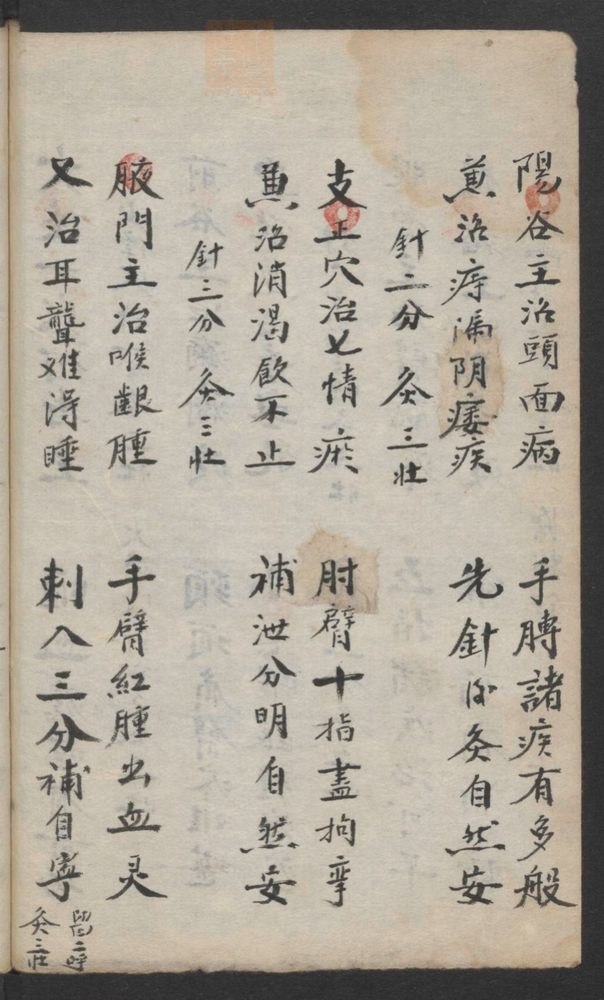 陽谷主治頭面病 手膊諸疾有多般
兼治痔漏阴痿疾 先針後灸自然安
針二分 灸三壯
支正穴治七情疾 肘臂十指盡拘挛
兼治消渴飲不止 補泄分明自然安
針三分 灸三壯
腋門主治喉齦腫 手臂紅腫出血灵
又治耳聾难得睡 刺入三分補自寧
留二呼
灸三壯